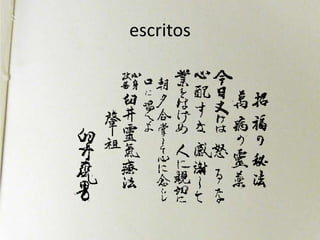 escritos
招福の秘法
萬病の霊薬
今日丈けは 怒るな
心配すな 感謝して
業をはけめ 人に親切に
朝夕合掌して心に念じ
口に唱へよ
心身改善 臼井靈氣療法
肇祖
臼井甕男